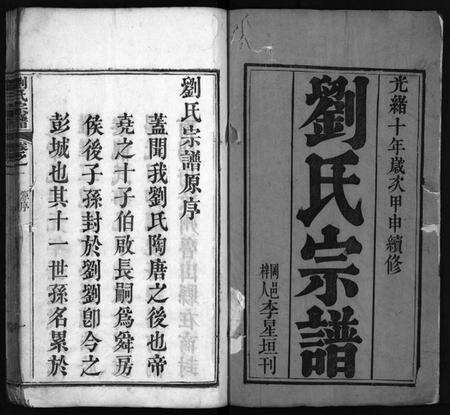 光緒十年歲次甲申續修
劉氏宗譜
梓人李星垣刊
劉氏宗譜原序
蓋聞我劉氏陶唐之後也帝
堯之十子伯啟長嗣爲舜房
侯後子孫封於劉劉卽今之
彭城也其十一世孫名累於
劉氏宗譜